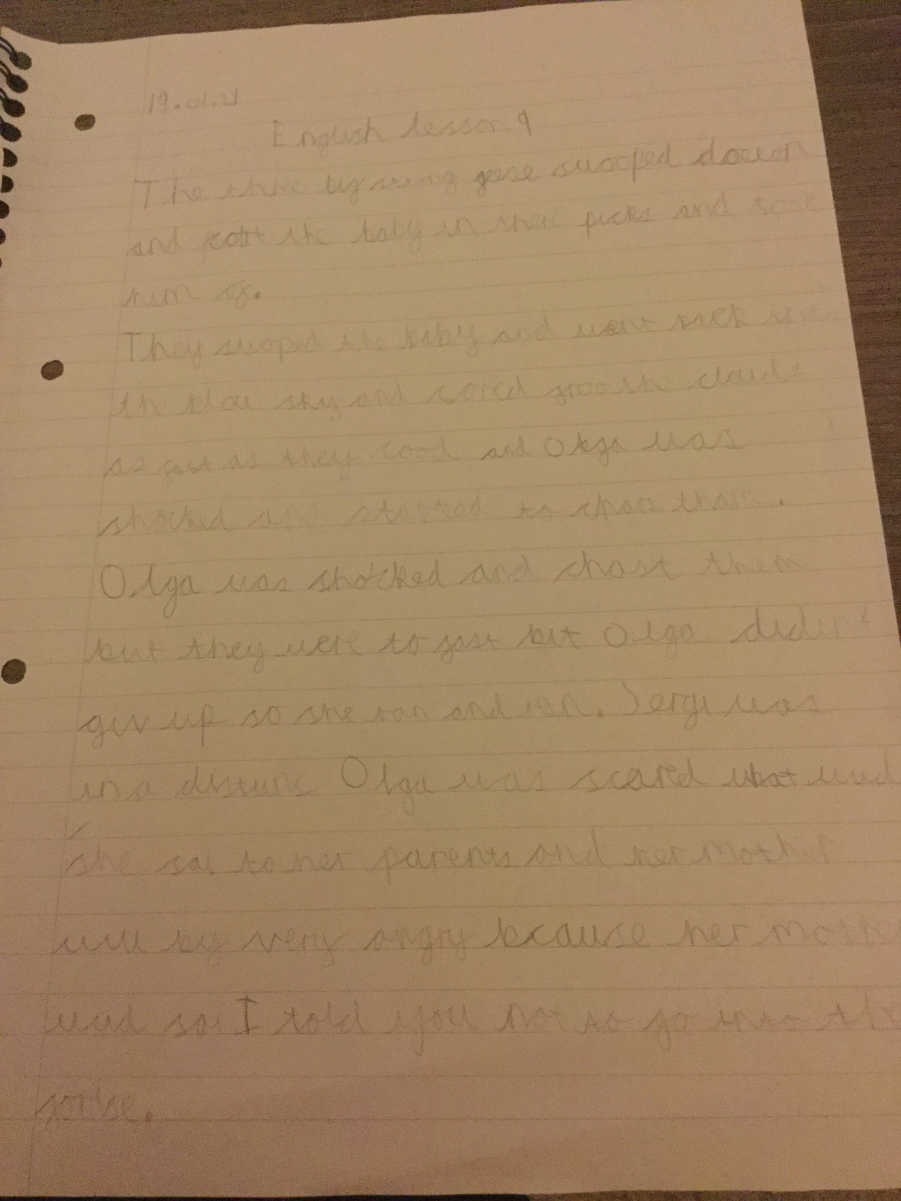 19.01.21
English lesson 9
The three big swong geese swooped down
and the baby in there picks and took
him of.
They swoped the baby and went back into
the sky and sored froo the clouds
as fast as they cood and Olga was
shocked and started to chase tham.
Olga was shocked and chast them
but they were to fast but Olga didin't
giv up so she ran and ran. Sergi was
in a Olga was scared what wud
she sai to her parents and her mother
will by very angry because her mother
wud sai I told you not to go into the